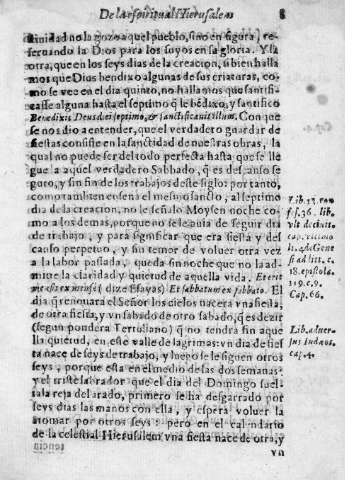 De la espiritual Hierusalem 8
tinidad no la gozo aquel pueblo, sino en figura, re-
seruando la Dios para los suyos en sa gloria. Y la
otra, que en los seys dias de la creacion, si bien halla
mos que Dios bendixo algunas de sus criaturas, co-
mo se vee en el dia quinto, no hallamos que santifi-
casse alguna hasta el septimo q̃ le bẽdixo, y santifico
Benedixit Deus diei septimo, & sanctificauit illum. Con que
se nos dio a entender, que el verdadero guardar de
fiestas consiste en la sanctidad de nuestras obras, la
qual no puede ser del todo perfecta hasta que se lle
gue la aquel verdadero Sabbado, q̃ es descanso se
guro, y sin fin de los trabajos deste siglo: por tanto,
como tambien enseña el mesmo sancto, al septimo
dia de la creacion, no le señalo Moysen noche co-
mo a los demas, porque no se le auia de seguir dia
de trabajo, y para significar que era fiesta y des
canso perpetuo, y sin temor de voluer otra vez
a la labor passada, queda sin noche que no la ad-
mite la claridad y quietud de aquella vida. Et erit
mensis ex mense (dize Esayas) Et sabbatum ex sabbato. El
dia q̃ renouara el Señor los cielos nacera vna fiesta,
de otra fiesta, y vn sabado de otro sabado, q̃ es dezir
(segun pondera Tertuliano) q̃ no tendra fin aque
lla quietud, en este valle de lagrimas: vn dia de fies
ta nace de seys de trabajo, y luego se le siguen otros
seys, porque esta en el medio de las dos semanas:
y el triste labrador que el dia del Domingo suel-
ta la reja del arado, primero se ha desgarrado por
seys dias las manos con ella, y espera voluer la
a tomar por otros seys: pero en el calendario
de la celestial Hierusalem vna fiesta nace de otra, y
vn
Lib. 12.
36. lib.
de ciuit.
Gene
ad litt. c.
18. epistola.
119. c. 9.
Cap. 66.
Lib. aduer
sus iudæos.
ca. 4.